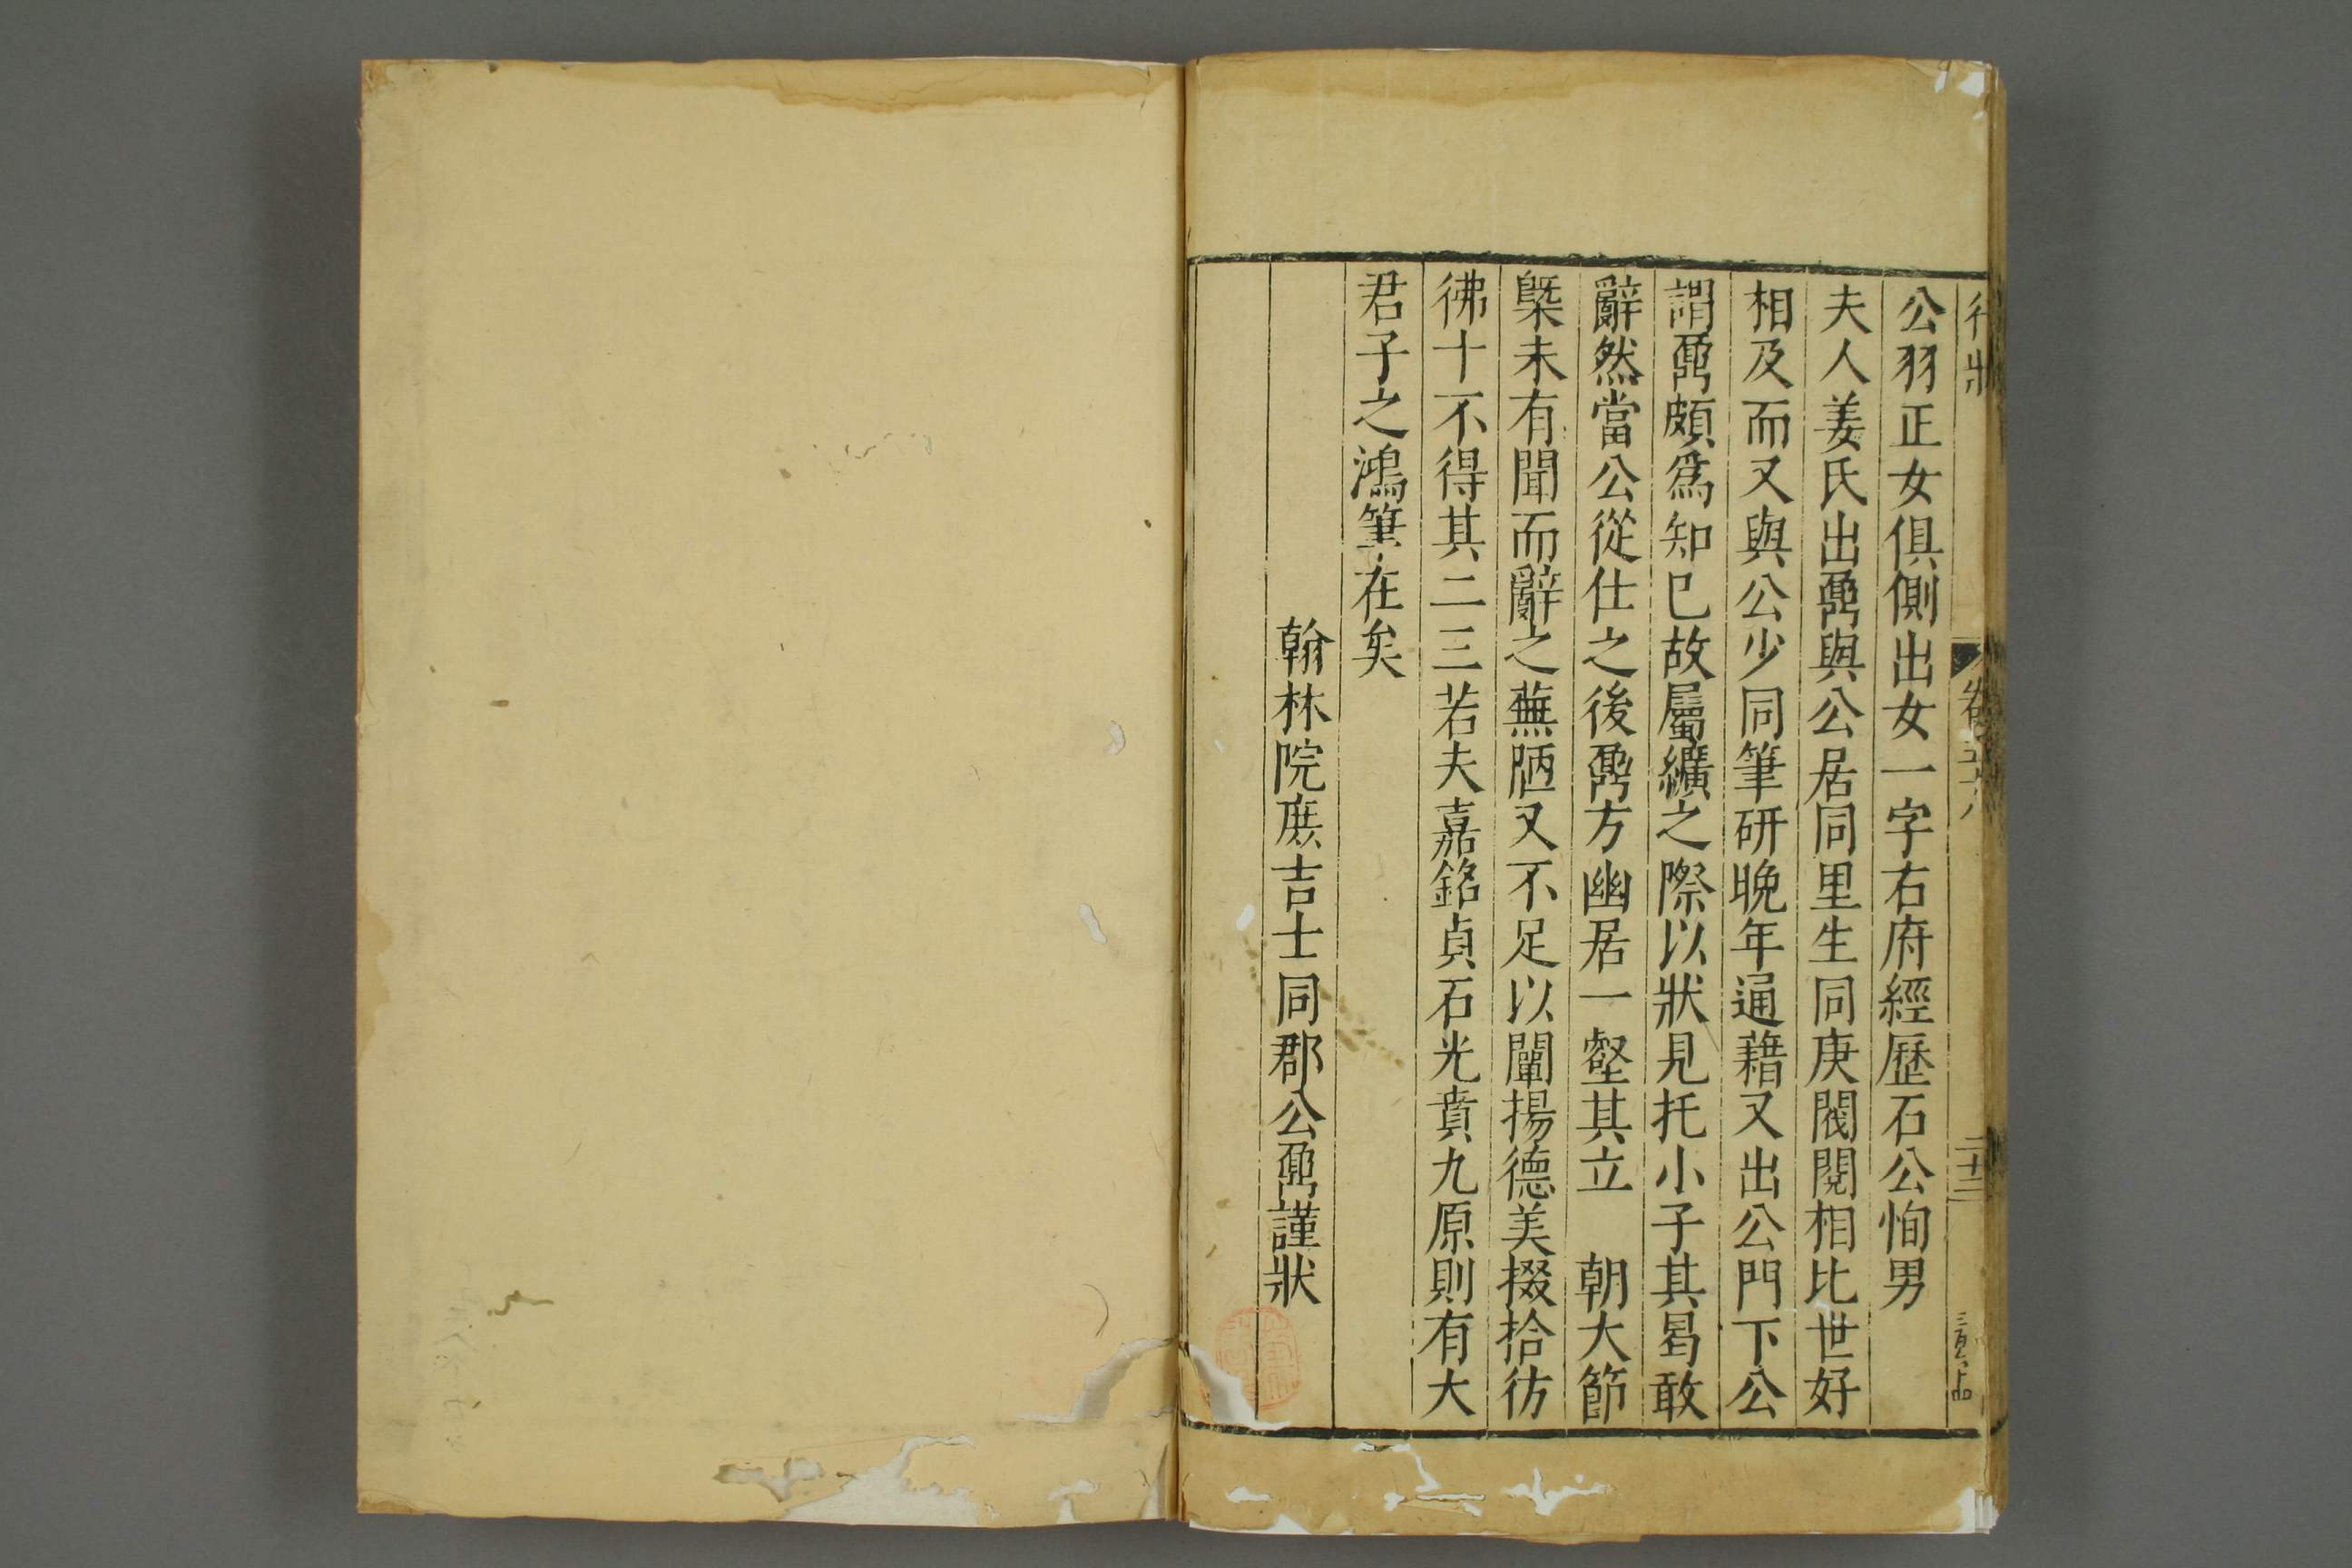 行狀
卷五十八
二十二
公羽正女俱側出女一字右府經歷石公恂男
夫人姜氏出鼐與公居同里生同庚閥閱相比世好
相及而又與公少同筆研晚年通藉又出公門下公
謂鼐頗爲知已故屬纊之際以狀見托小子其曷敢
辭然當公從仕之後鼐方幽居一壑其立　朝大節
槩未有聞而辭之蕪陋又不足以闡揚德美掇拾彷
彿十不得其二三若夫嘉銘貞石光賁九原則有大
君子之鴻筆在矣
翰林院庶吉士同郡公鼐謹狀